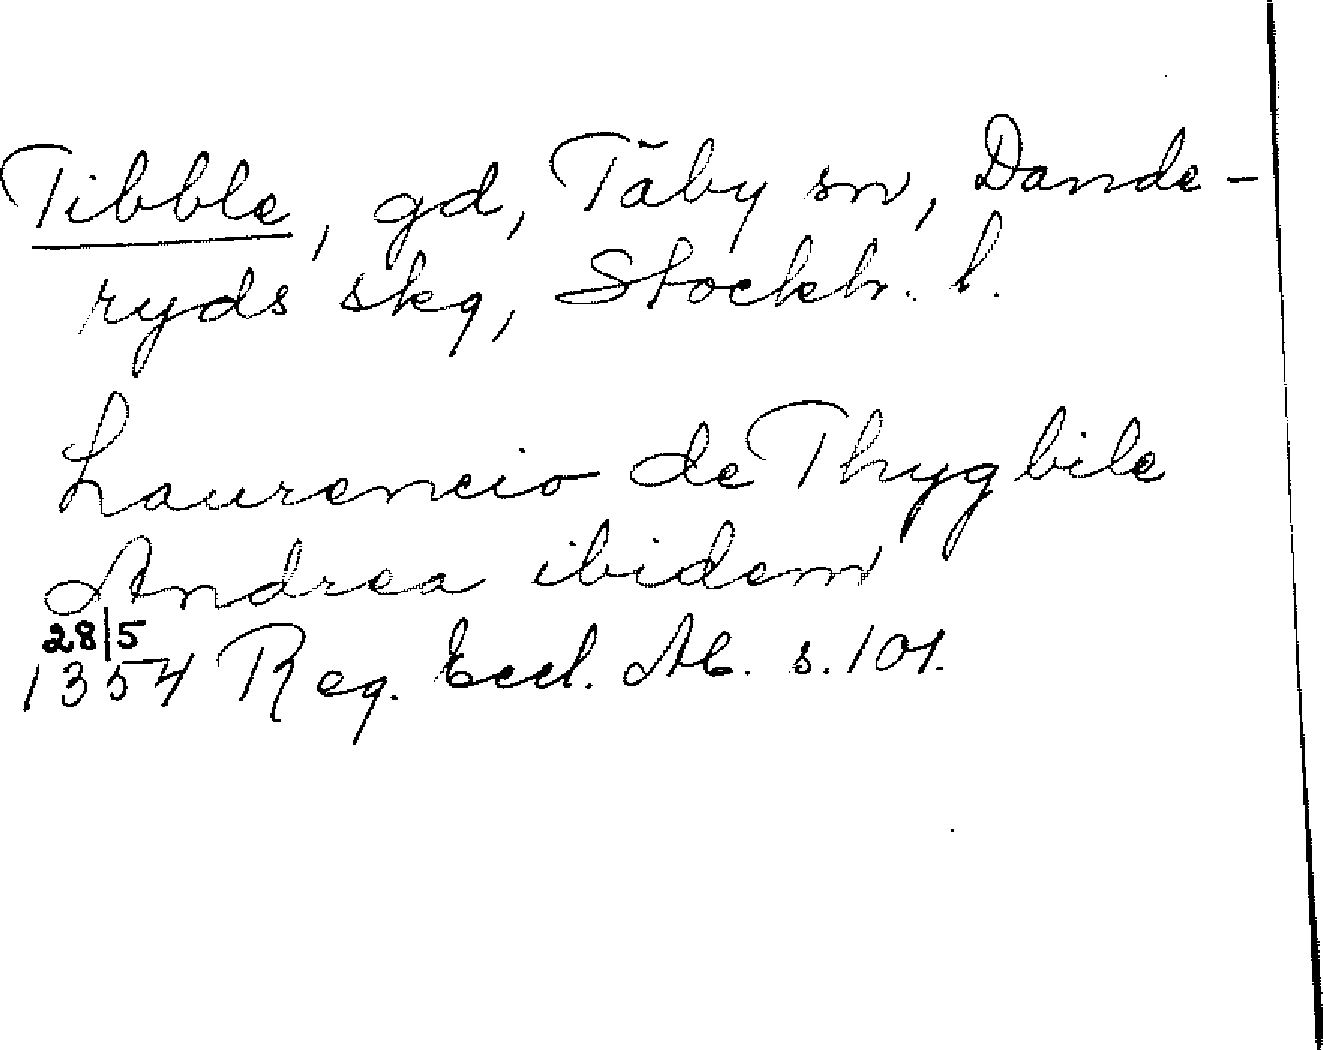 Tibble, gd, Täby sn, Dande-
ryds skg, Stockh. l.
Laurencio de Thygbile
Andrea ibidem
28/5
1354 Reg. Eccl. Ab. s. 101.